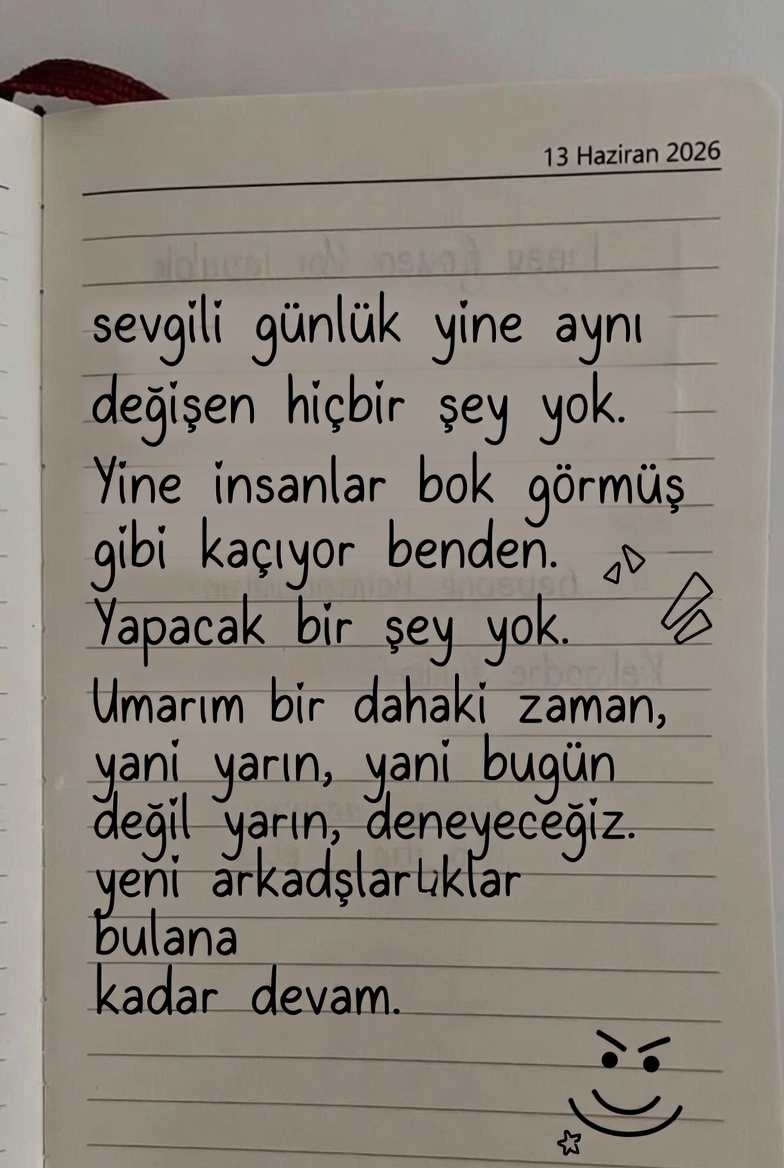 13 Haziran 2026
sevgili günlük yine aynı
değişen hiçbir şey yok.
Yine insanlar bok görmüş
gibi kaçıyor benden.
Yapacak bir şey yok.
Umarım bir dahaki zaman,
yani yarın, yani bugün
değil yarın, deneyeceğiz.
yeni
bulana
kadar devam.